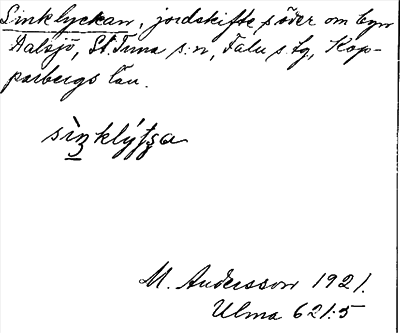 Sinklyckan, jordskifte söder om byn
Aalsjö, St. Tuna s:n, Falu s. fg, Kop-
parbergs län.
sìn̠klýt̠s̠a
M. Andersson 1921.
Ulma 621:5